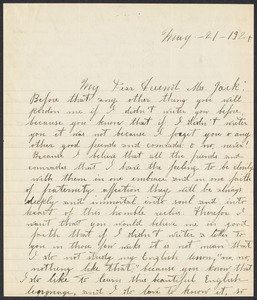 May-21-19
My Dear Friend Mr. Jack:
Before that any other thing you will
perdon me if I didn't writer you,
because you know that if I didn't writer
you it was not because I forget you or any
other good friends and comrades, no, mair!
Because I belive that all the friends and
comrades that I have the feeling to belive
with them in one embrace and in one path
of fraternity affection they will be always
deeply and inmortal with soul and into
heart of this humble reclus. Therefor I
want that you would beleive me in good
faith that if I didn't writer a letter to
you in those few weeks it is not mean that I
do not study my English lesson, "no, no,
nothing like that," because you knew that
I do like to learn this beautiful English
language, and I do love to know it, so